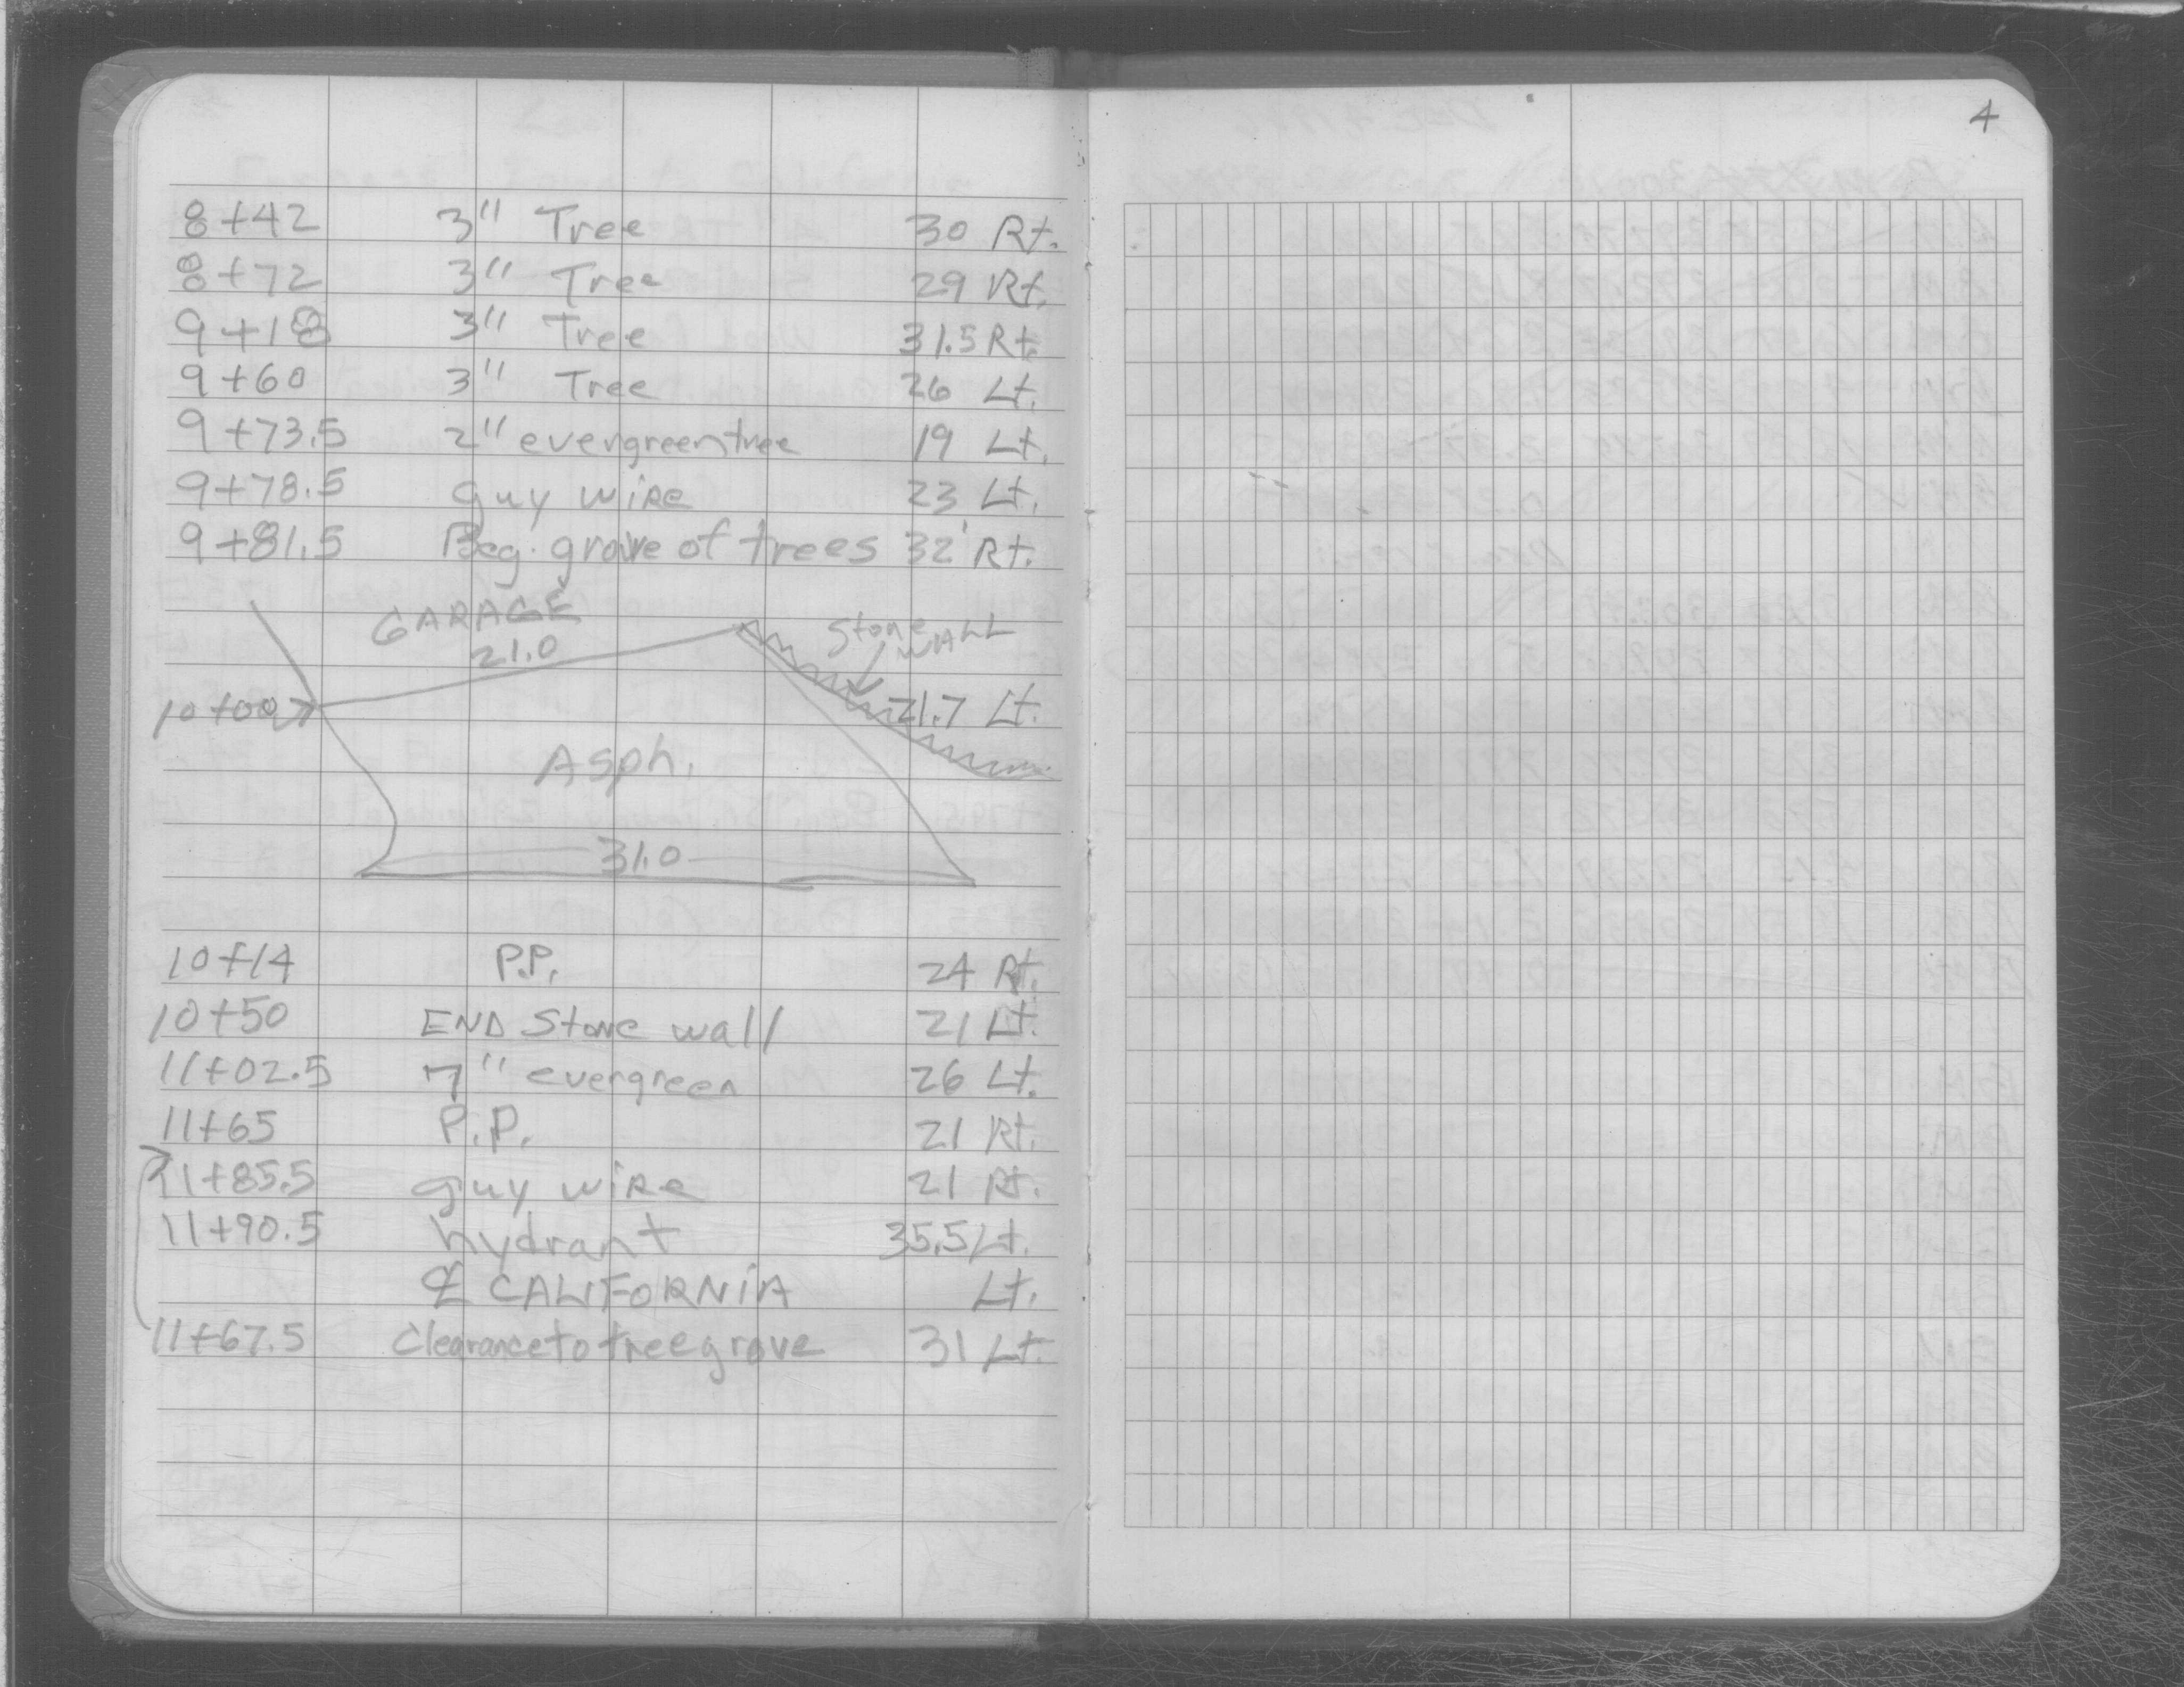 4
8+42 3" Tree 30 Rt.
8+72 3" Tree 29 Rt.
9+18 3" Tree 31.5 Rt.
9+60 3" Tree 26 Lt.
9+73.5 2" evergreen tree 19 Lt.
9+78.5 guy wire 23 Lt.
9+81.5 Beg. grove of trees 32' Rt.
GARAGE
21.0
Stone WALL
10+00 21.7 Lt.
Asph.
31.0
10+14 P.P. 24 Rt.
10+50 END Stone wall 21 Lt.
11+02.5 7" evergreen 26 Lt.
11+65 P.P. 21 Rt.
11+85.5 guy wire 21 Rt.
11+90.5 hydrant 35.5 Lt.
℄ CALIFORNIA Lt.
11+67.5 Clearance to tree grove 31 Lt.